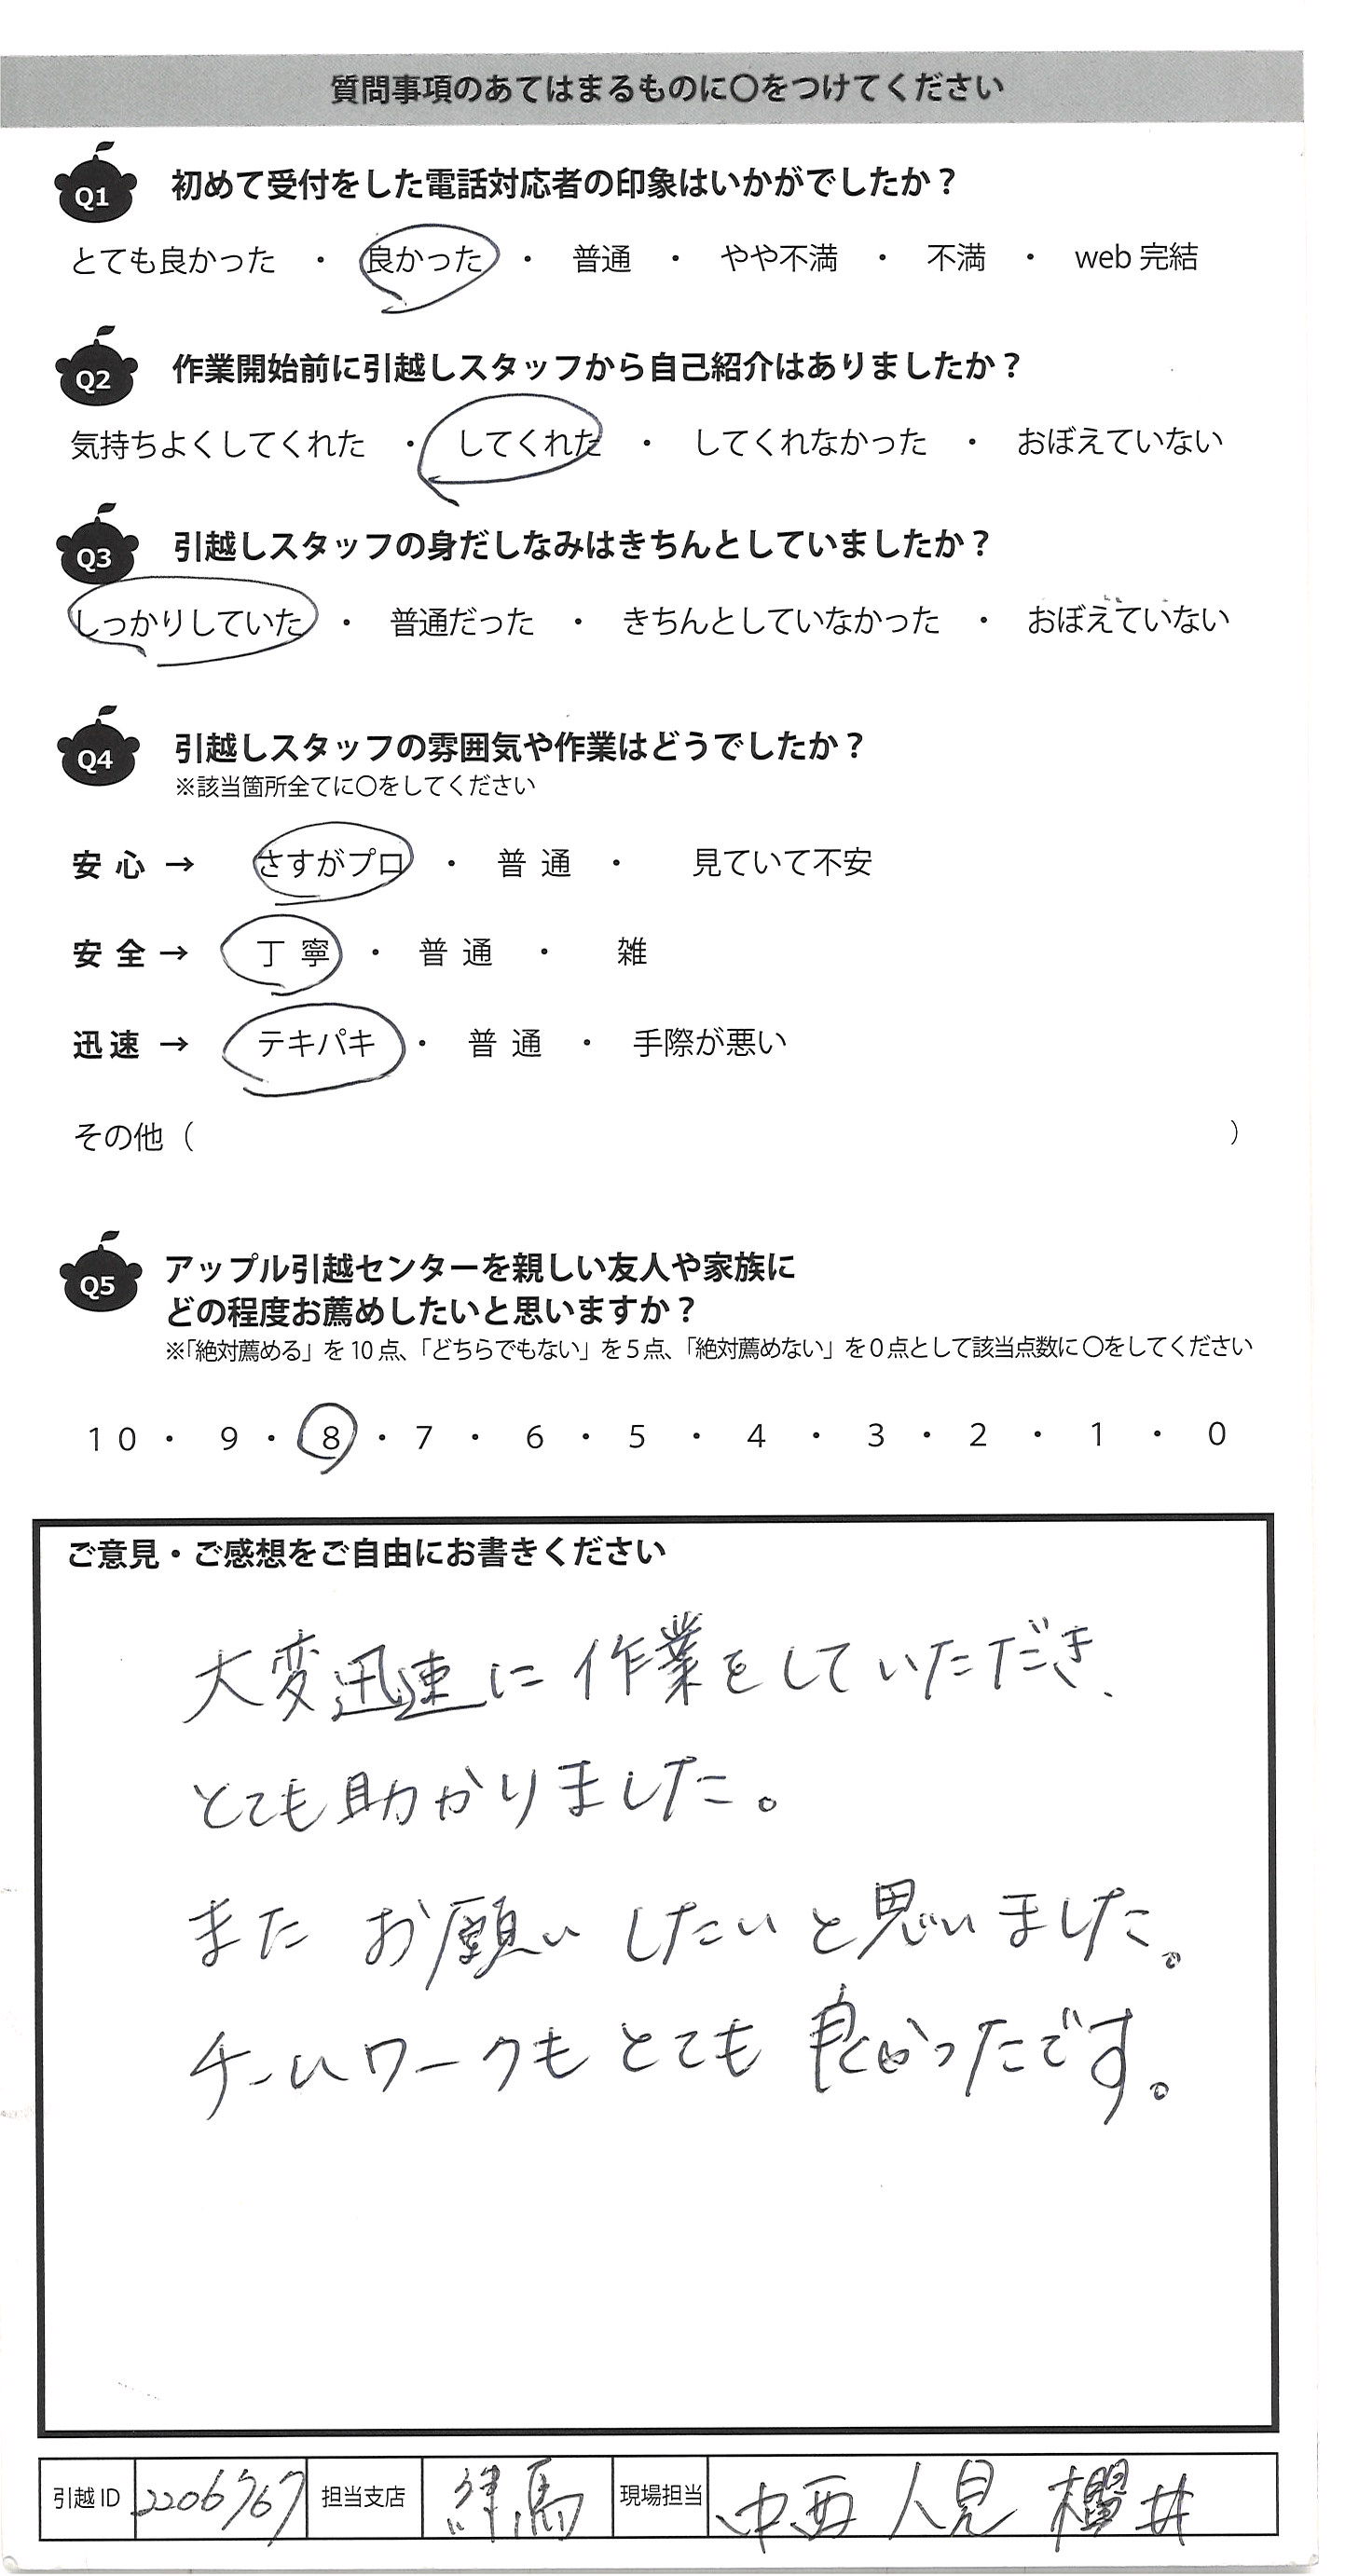 質問事項のあてはまるものに〇をつけてください
Q1 初めて受付をした電話対応者の印象はいかがでしたか？
とても良かった ・ 良かった ・ 普通 ・ やや不満 ・ 不満 ・ web 完結
Q2 作業開始前に引越しスタッフから自己紹介はありましたか？
気持ちよくしてくれた ・ してくれた ・ してくれなかった ・ おぼえていない
Q3 引越しスタッフの身だしなみはきちんとしていましたか？
しっかりしていた ・ 普通だった ・ きちんとしていなかった ・ おぼえていない
Q4 引越しスタッフの雰囲気や作業はどうでしたか？
※該当箇所全てに〇をしてください
安心 → さすがプロ ・ 普通 ・ 見ていて不安
安全 → 丁寧 ・ 普通 ・ 雑
迅速 → テキパキ ・ 普通 ・ 手際が悪い
その他（ ）
Q5 アップル引越センターを親しい友人や家族に
どの程度お薦めしたいと思いますか？
※「絶対薦める」を 10 点、「どちらでもない」を 5 点、「絶対薦めない」を 0 点として該当点数に 〇をしてください
10 ・ 9 ・ 8 ・ 7 ・ 6 ・ 5 ・ 4 ・ 3 ・ 2 ・ 1 ・ 0
ご意見・ご感想をご自由にお書きください
大変迅速に作業をしていただき、
とても助かりました。
またお願いしたいと思いました。
チームワークもとても良かったです。
引越 ID 2206767 担当支店 練馬 現場担当 中西 人見 櫻井